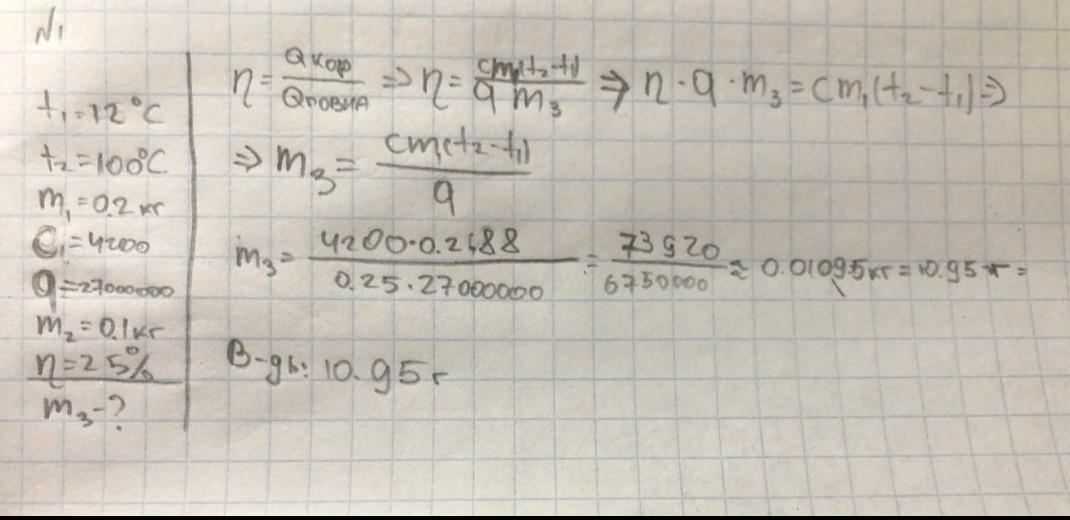 N1
t₁=12°C
t₂=100°C
m₁=0.2 кг
C₁=4200
q=27000000
m₂=0.1кг
η=25%
m₃-?
η = Qкор / Qповна ⇒ η = cm₁(t₂-t₁) / q m₃ ⇒ η · q · m₃ = cm₁(t₂-t₁) ⇒
⇒ m₃ = cm₁(t₂-t₁) / q
m₃ = 4200·0.2·88 / 0.25·27000000 = 73920 / 6750000 ≈ 0.01095кг = 10.95 г =
В-дь: 10.95 г